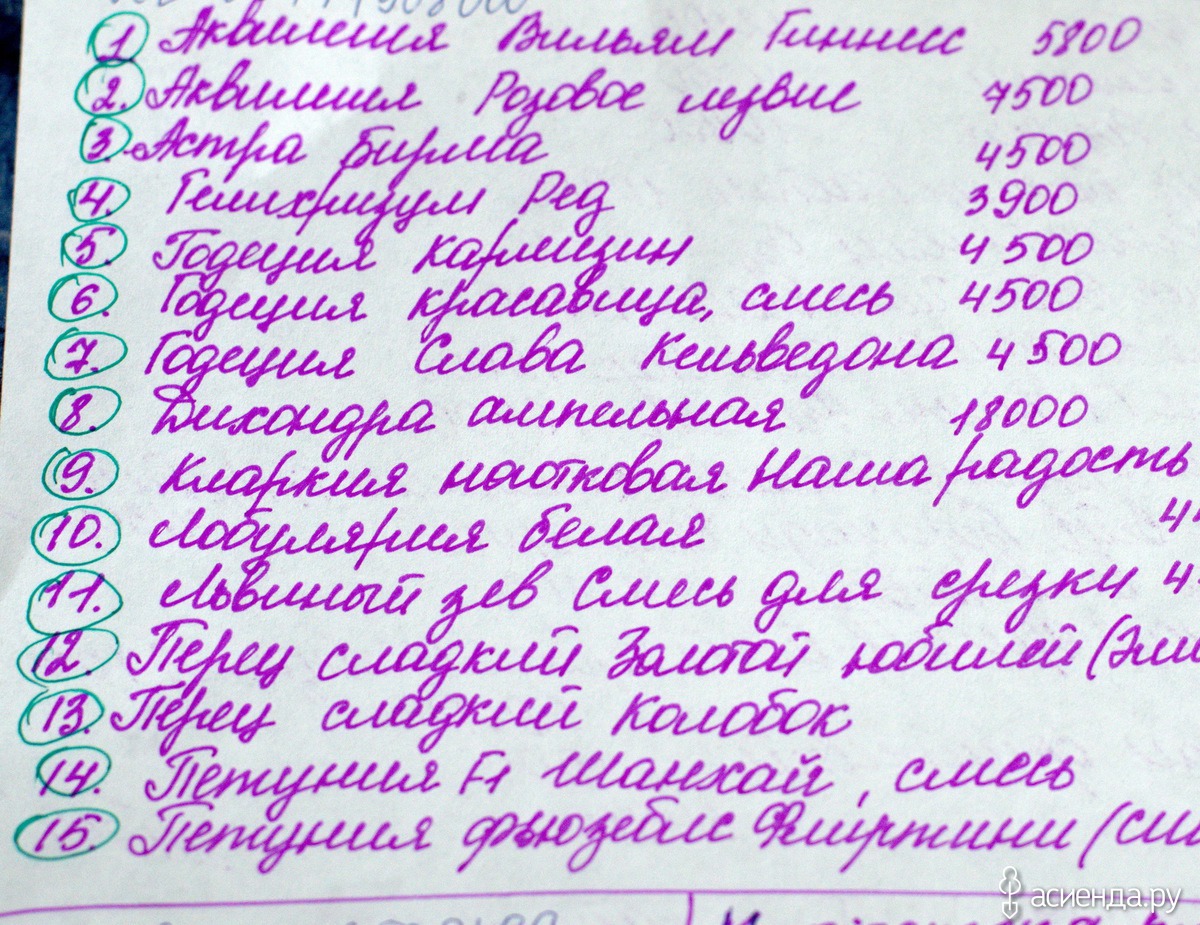 1 Аквилегия Вильям Гиннесс 5800
2. Аквилегия Розовое лезвие 7500
3. Астра Бирма 4500
4. Гелихризум Ред 3900
5. Годеция кармицин 4500
6. Годеция красавица, смесь 4500
7. Годеция Слава Кельведона 4500
8. Дихондра ампельная 18000
9. Кларкия ноготковая Наша радость
10. Лобулярия белая 4
11. Львиный зев Смесь для срезки 4
12. Перец сладкий Золотой юбилей (Эли
13. Перец сладкий Колобок
14. Петуния F1 Шанхай, смесь
15. Петуния фьюзеблс Флиртини (си
асиенда.ру